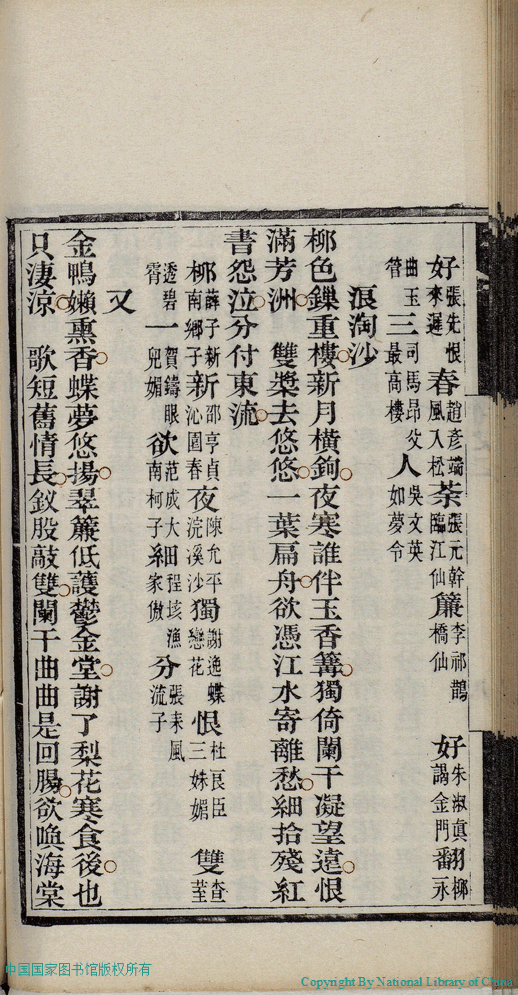 好張先恨來遲春趙彥端風入松荼張元幹臨江仙簾李祁鵲橋仙 好朱淑眞謁金門翻柳永
曲玉管三司馬昂父最高樓人吳文英如夢令
浪淘沙
柳色鏁重樓新月橫鉤夜寒誰伴玉香篝獨倚闌干凝望遠恨
滿芳洲 雙槳去悠悠一葉扁舟欲憑江水寄離愁細拾殘紅
書怨泣分付東流
柳薛子新南鄉子新邵亨貞沁園春夜陳允平浣溪沙獨謝逸蝶戀花恨杜良臣三妹媚 雙查荎
透碧霄一賀鑄眼兒媚欲范成大南柯子細程垓漁家傲分張耒風流子
又
金鴨嬾熏香蝶夢悠揚翠簾低護鬱金堂謝了梨花寒食後也
只淒涼 歌短舊情長釵股敲雙闌干曲曲是回腸欲喚海棠
中国国家图书馆版权所有
Copyright By National Library of China